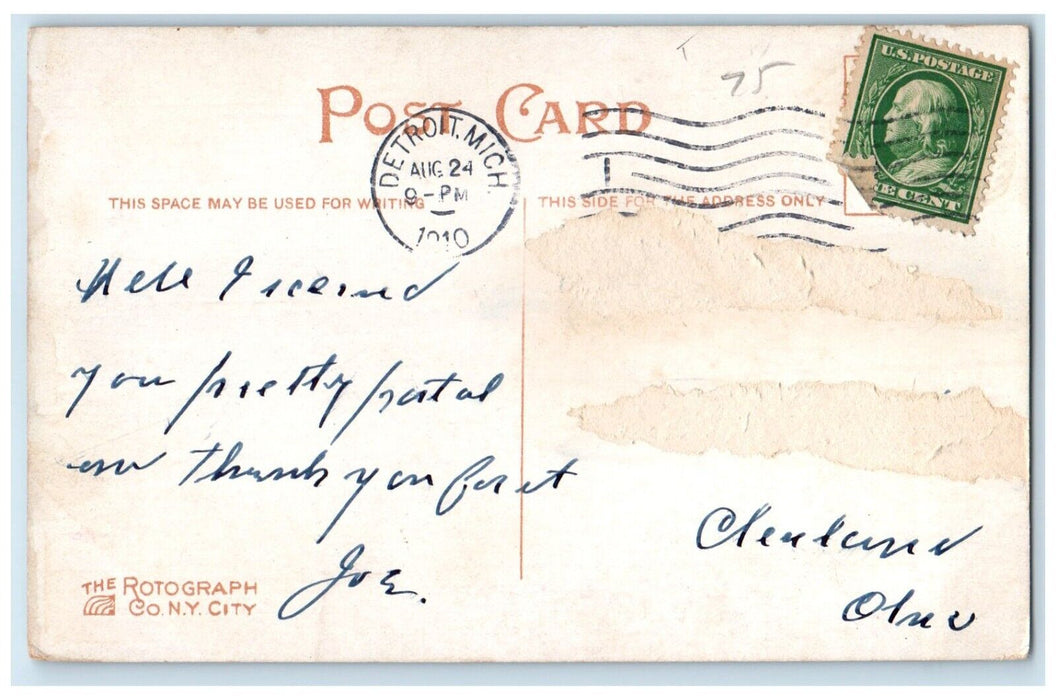 75
POST CARD
U.S. POSTAGE
DETROIT. MICH.
AUG 24
9-PM
1910
E CENT
THIS SPACE MAY BE USED FOR WRITING
THIS SIDE FOR THE ADDRESS ONLY
Hell I received
you pretty postal
and thank you for it
Joe.
Cleveland
Ohio
THE ROTOGRAPH
CO. N.Y. CITY